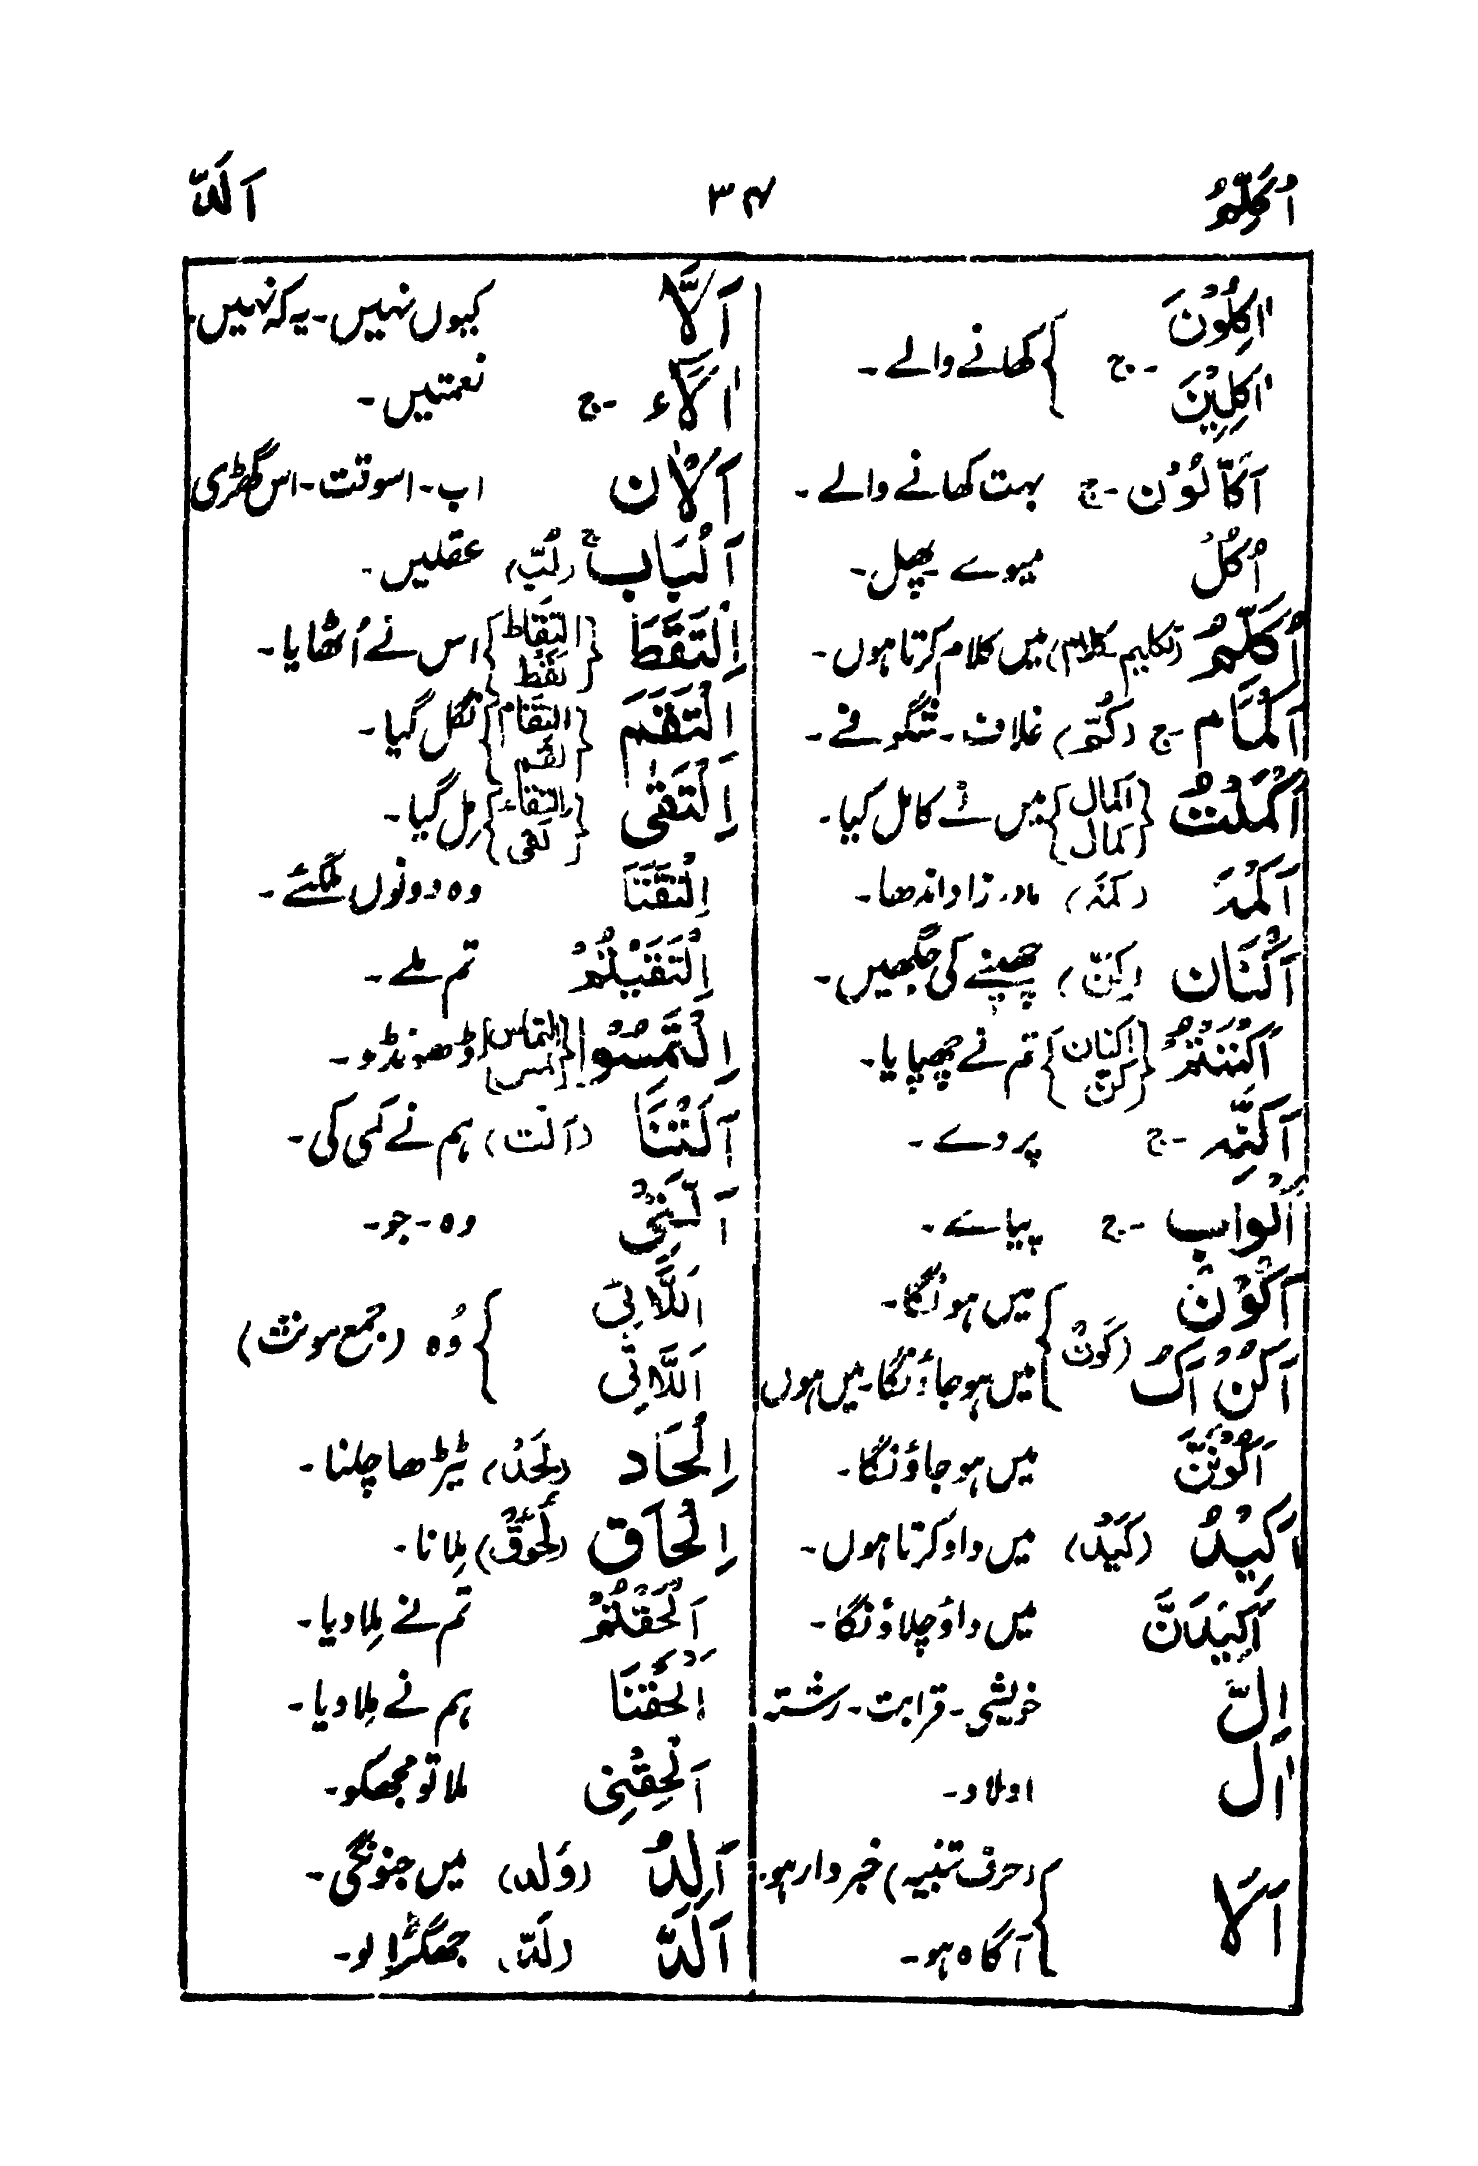 اُكَلِّمُ ۳۴ اَلَدّ
اٰكِلُوْنَ
اٰكِلِيْنَ -ج } کھانے والے -
اَكَّالُوْن -ج بہت کھانے والے -
اُكُلْ میوے پھل -
اُكَلِّمُ (تکلیم کلام) میں کلام کرتا ہوں -
اَكْمَام -ج (كُمّ) غلاف - شگوفے -
اَكْمَلْتُ {اکمال کمال} میں نے کامل کیا -
اَكْمَهَ (كَمَهَ) مادر زاد اندھا -
اَكْنَان (كِنّ) چھپنے کی جگھیں -
اَكْنَنْتُمْ {اکنان كنّ} تم نے چھپایا -
اَكِنَّه -ج پردے -
اَكْوَاب -ج پیالے -
اَكُوْنُ (كَوْن) } میں ہونگا -
اَكُنْ اَكُ میں ہو جاؤنگا - میں ہوں
اَكُوْنَنَّ میں ہو جاؤنگا -
اَكِيْدُ (كَيْد) میں داو کرتا ہوں -
اَكِيْدَنَّ میں داؤ چلاؤنگا -
اِلّ خویشی - قرابت - رشتہ
اٰل اولاد -
اَلَا } (حرف تنبیہ) خبردار ہو.
آگاہ ہو -
اَلَّا کیوں نہیں - یہ کہ نہیں -
اٰلَآء -ج نعمتیں -
اَلْاٰن اب - اسوقت - اس گھڑی
اَلْبَاب ج (لُبّ) عقلیں -
اِلْتَقَطَ {التقاط لقط} اس نے اُٹھایا -
اِلْتَقَمَ {التقام لقم} نگل گیا -
اِلْتَقٰى {التقاء لقى} مِل گیا -
اِلْتَقَتَا وہ دونوں ملگئے -
اِلْتَقَيْتُمْ تم ملے -
اِلْتَمِسُوْا {التماس لمس} ڈھونڈو -
اَلَتْنَا (اَلت) ہم نے کمی کی -
اَلَّتِىْ وہ - جو -
اَللَّائِى
اَللَّاتِى } وُہ (جمع مونث)
اِلْحَاد (لَحَدُ) ٹیڑھا چلنا -
اِلْحَاق (لُحُوْقٌ) مِلانا -
اَلْحَقْتُمْ تم نے مِلا دیا -
اَلْحَقْنَا ہم نے مِلا دیا -
اَلْحِقْنِى ملا تو مجھکو -
اَلِدُ (وَلد) میں جنونگی -
اَلَدّ (لَدّ) جھگڑالو -